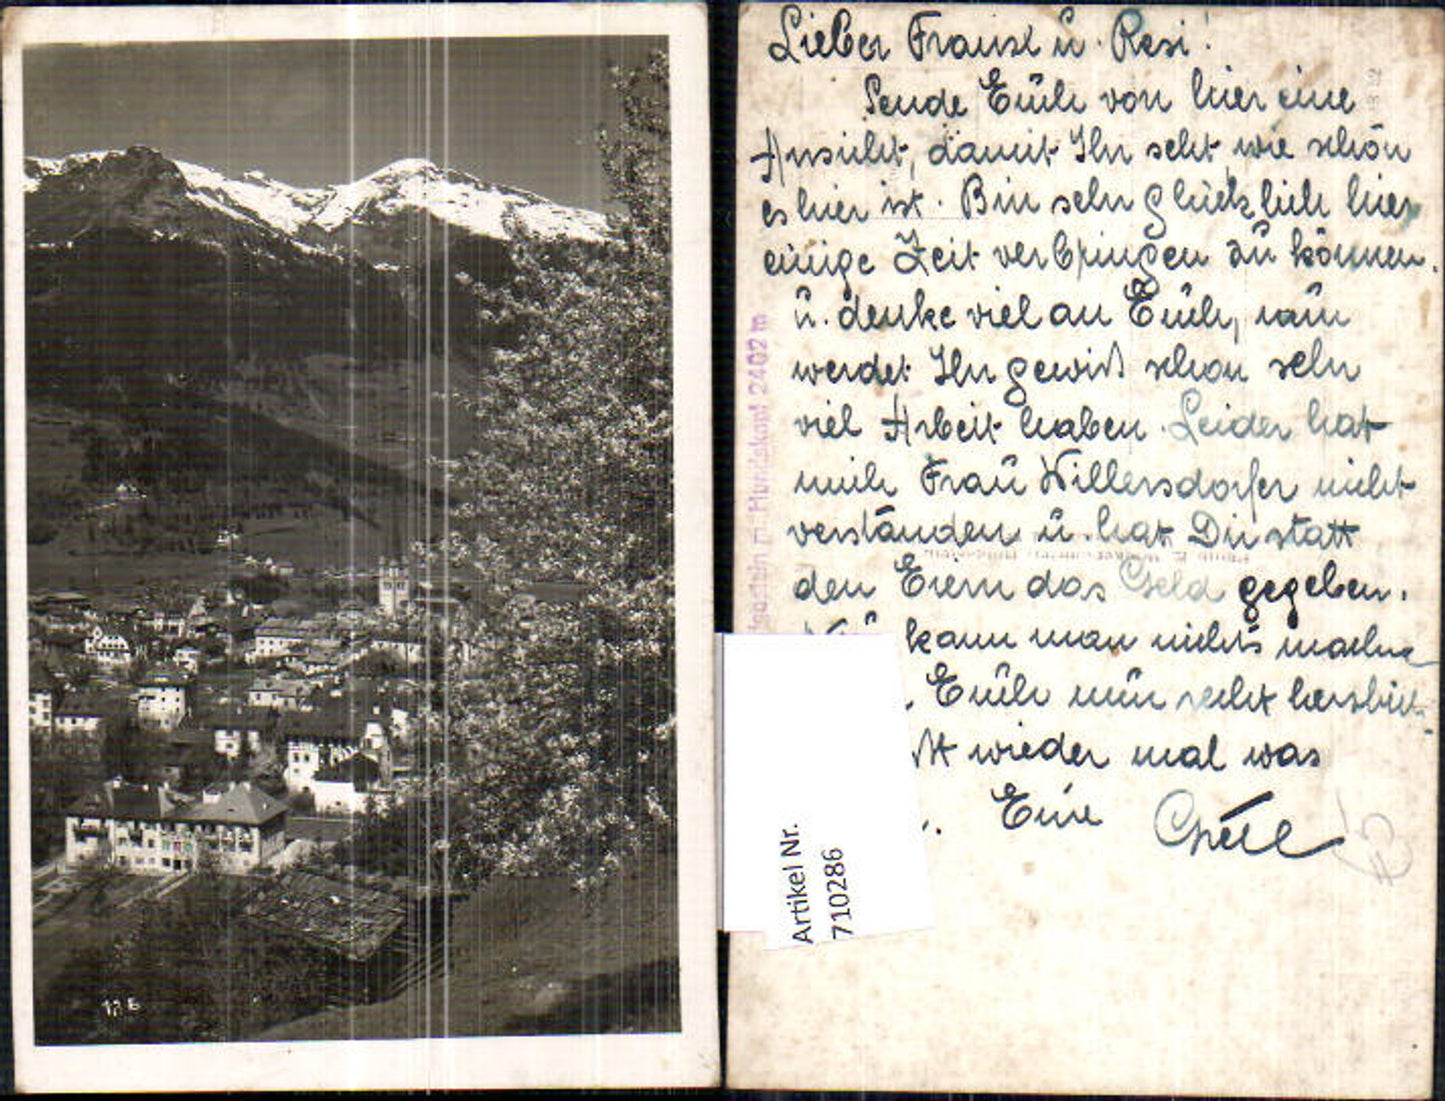 Lieber Franzl u. Resi!
Sende Euch von hier eine
Ansicht, damit Ihr seht wie schön
es hier ist. Bin sehr glücklich hier
einige Zeit verbringen zu können.
u. denke viel an Euch, nun
werdet Ihr gewiß schon sehr
viel Arbeit haben. Leider hat
mich Frau Willersdorfer nicht
verstanden u. hat Dir statt
den Eiern das Geld gegeben.
kann man nichts machen
Euch nun recht herzlich
wieder mal was
Eure
Hundskopf 2402 m
Artikel Nr.
710286